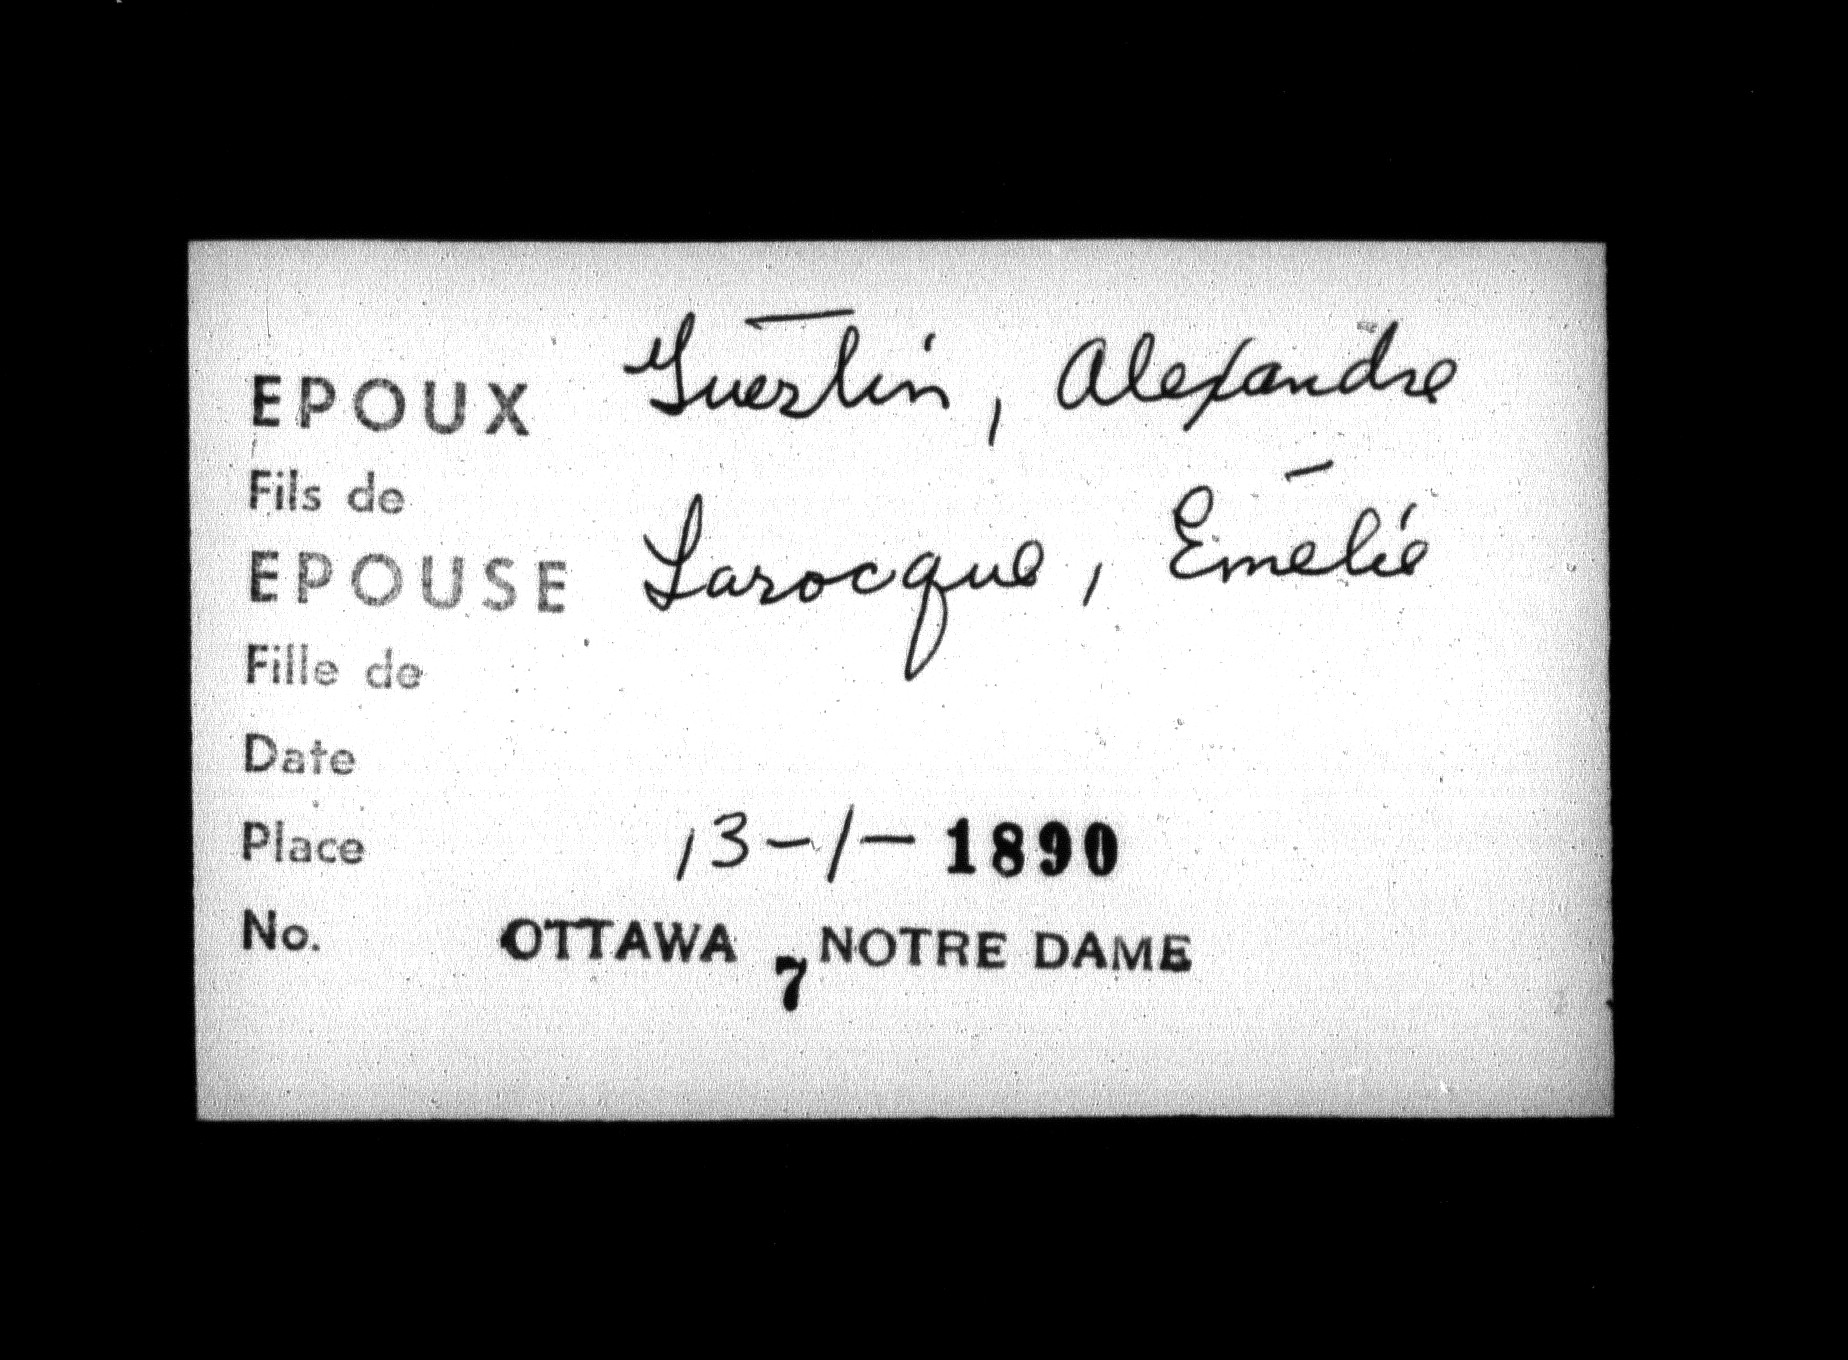 EPOUX Guertin, Alexandre
Fils de
EPOUSE Larocque, Emélie
Fille de
Date
Place 13-1-1890
No. OTTAWA NOTRE DAME
7